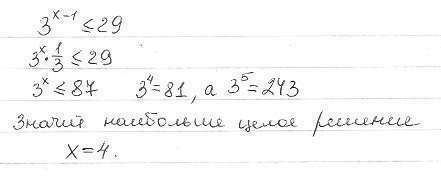 3^{x-1} ≤ 29
3^x · 1/3 ≤ 29
3^x ≤ 87 3^4 = 81, а 3^5 = 243
Значит наибольше целое решение
x = 4.